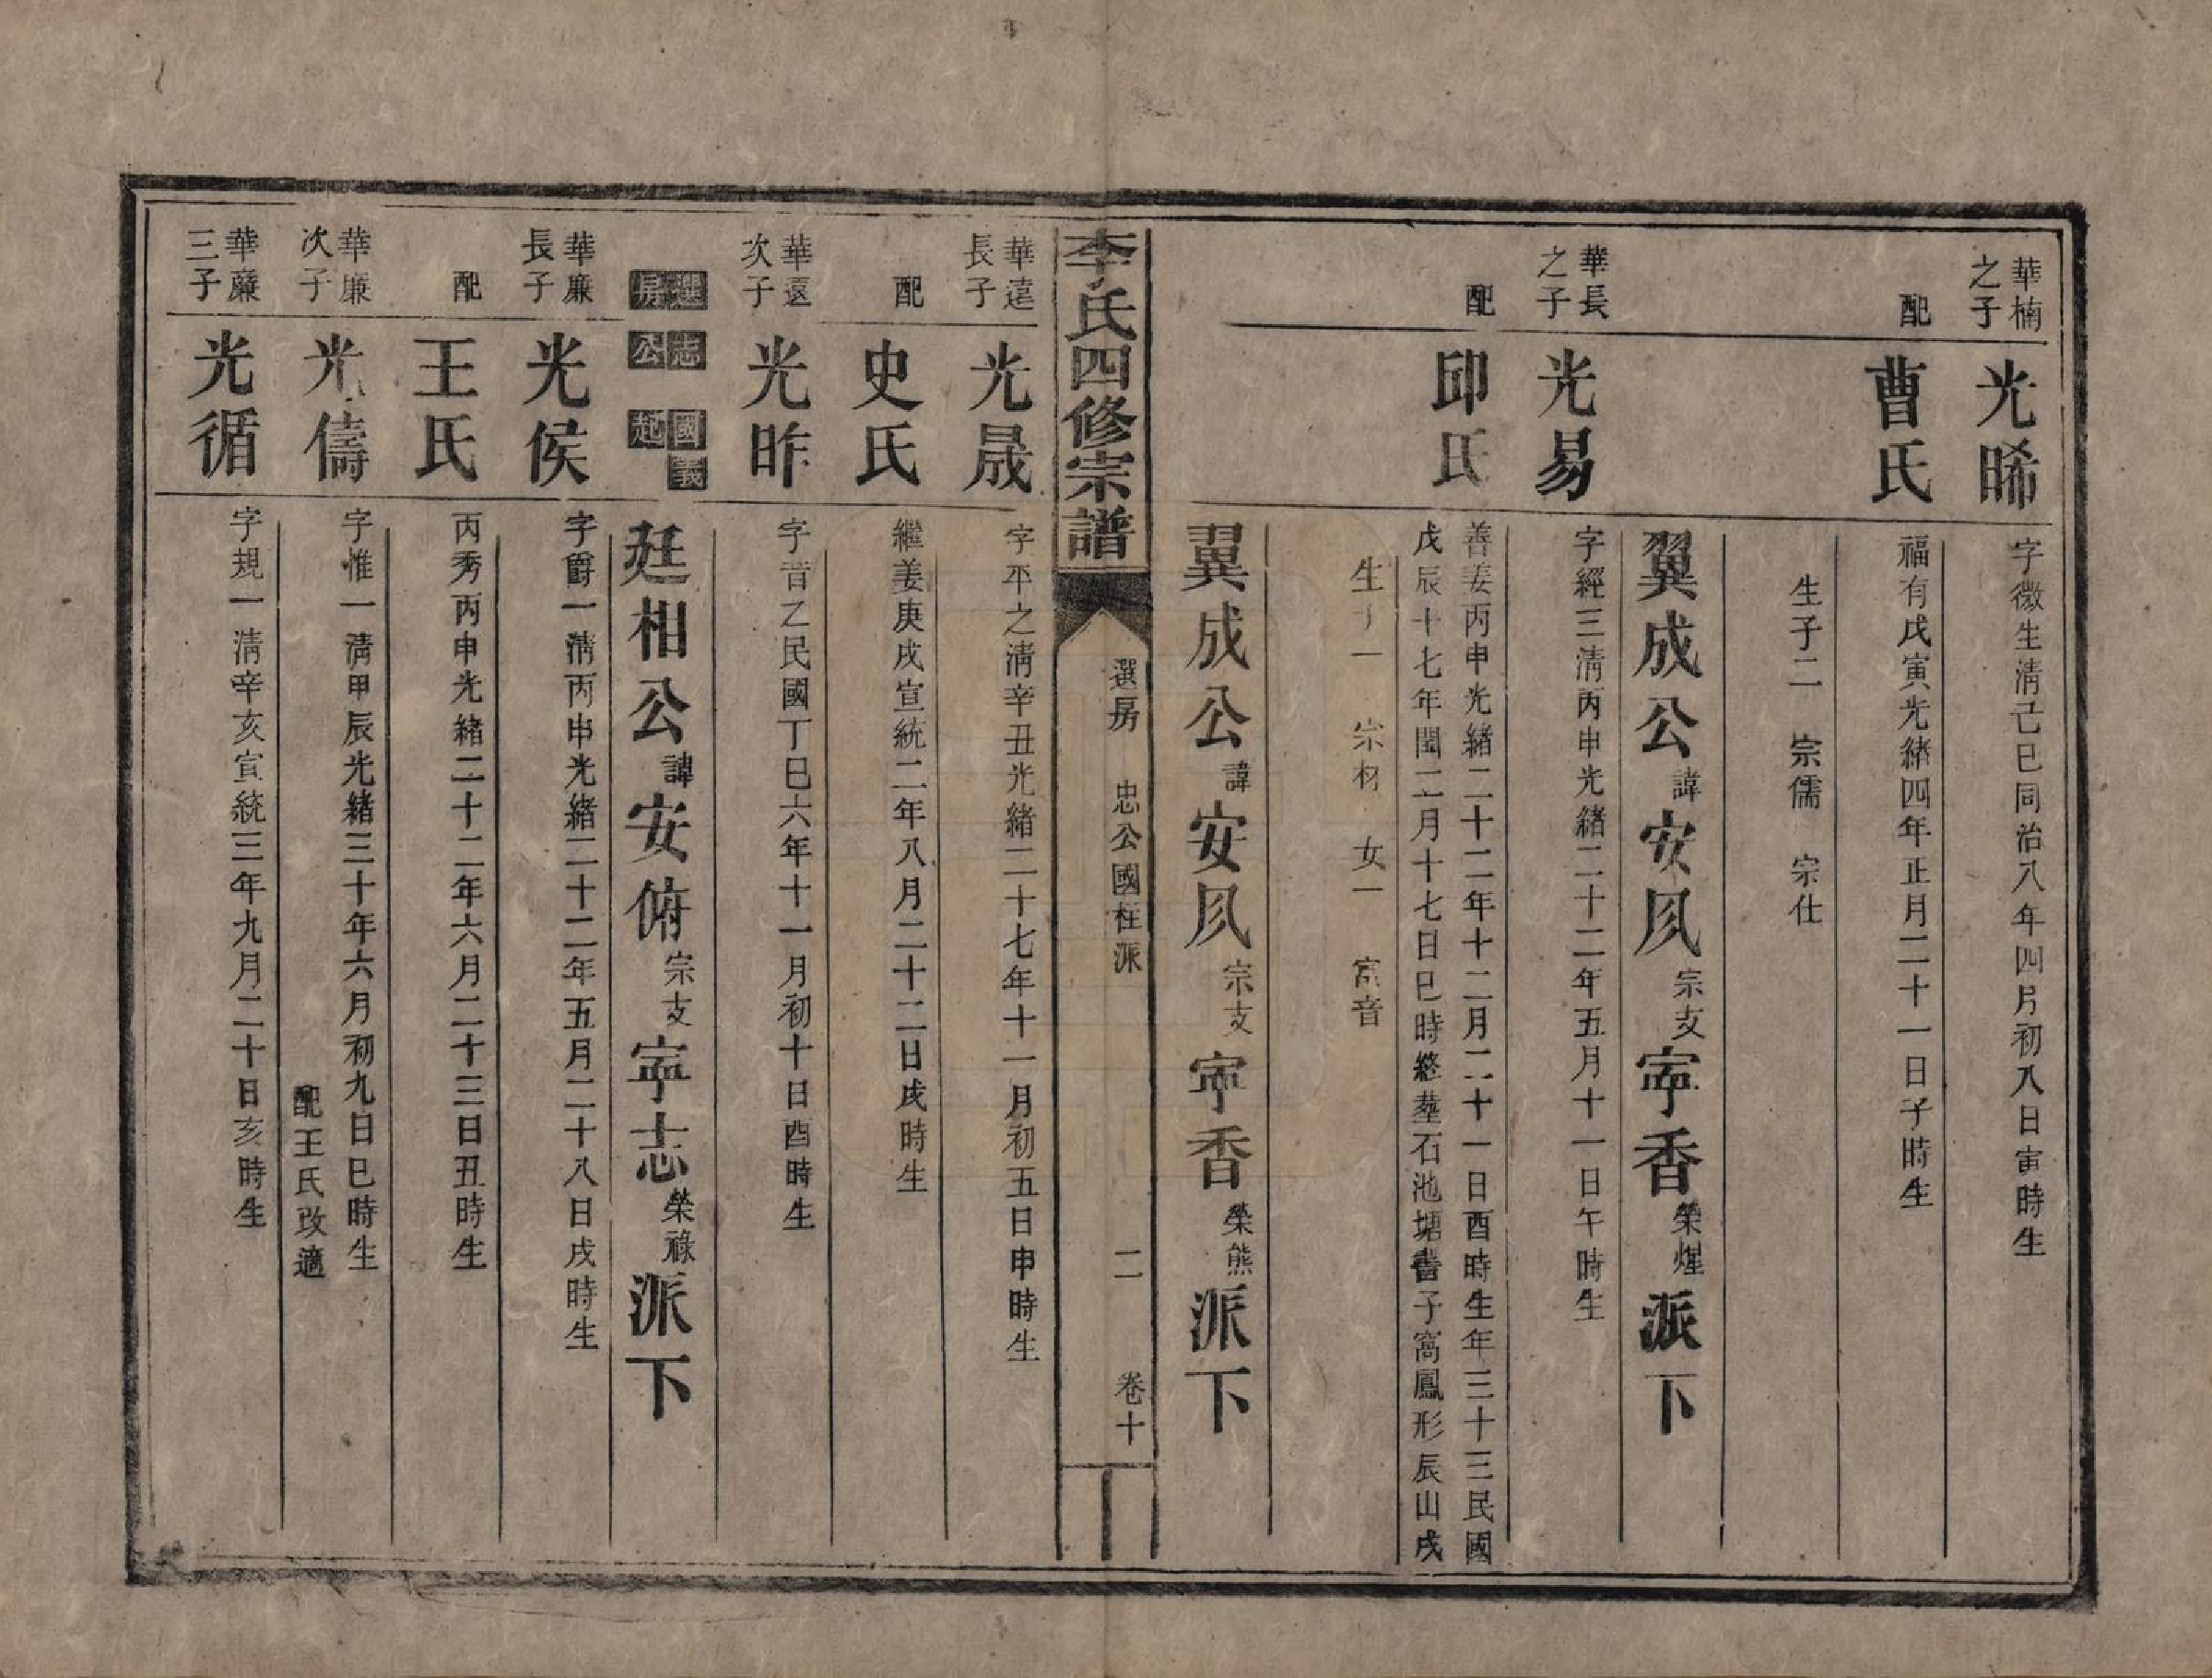 華楠之子 光晞 字微生淸己巳同治八年四月初八日寅時生
配 曹氏 福有戊寅光緖四年正月二十一日子時生
生子二 宗儒 宗仕
翼成公諱安凨宗支寕香榮煋派下
華長之子 光易 字經三淸丙申光緖二十二年五月十一日午時生
配 邱氏 善姜丙申光緖二十二年十二月二十一日酉時生年三十三民國
戊辰十七年閏二月十七日巳時終塟石池塘書子窩鳳形辰山戌
生子一 宗材 女一 富音
翼成公諱安凨宗支寕香榮熊派下
李氏四修宗譜 選房 忠公國柱派 二 卷十
華遠長子 光晟 字平之淸辛丑光緖二十七年十一月初五日申時生
配 史氏 繼姜庚戌宣統二年八月二十二日戌時生
華遠次子 光昨 字昔乙民國丁巳六年十一月初十日酉時生
選房 志公 國義起
廷相公諱安俯宗支寕志榮祿派下
華廉長子 光侯 字爵一淸丙申光緖二十二年五月二十八日戌時生
配 王氏 丙秀丙申光緖二十二年六月二十三日丑時生
華廉次子 光儔 字惟一淸甲辰光緖三十年六月初九日巳時生
配王氏改適
華廉三子 光循 字規一淸辛亥宣統三年九月二十日亥時生